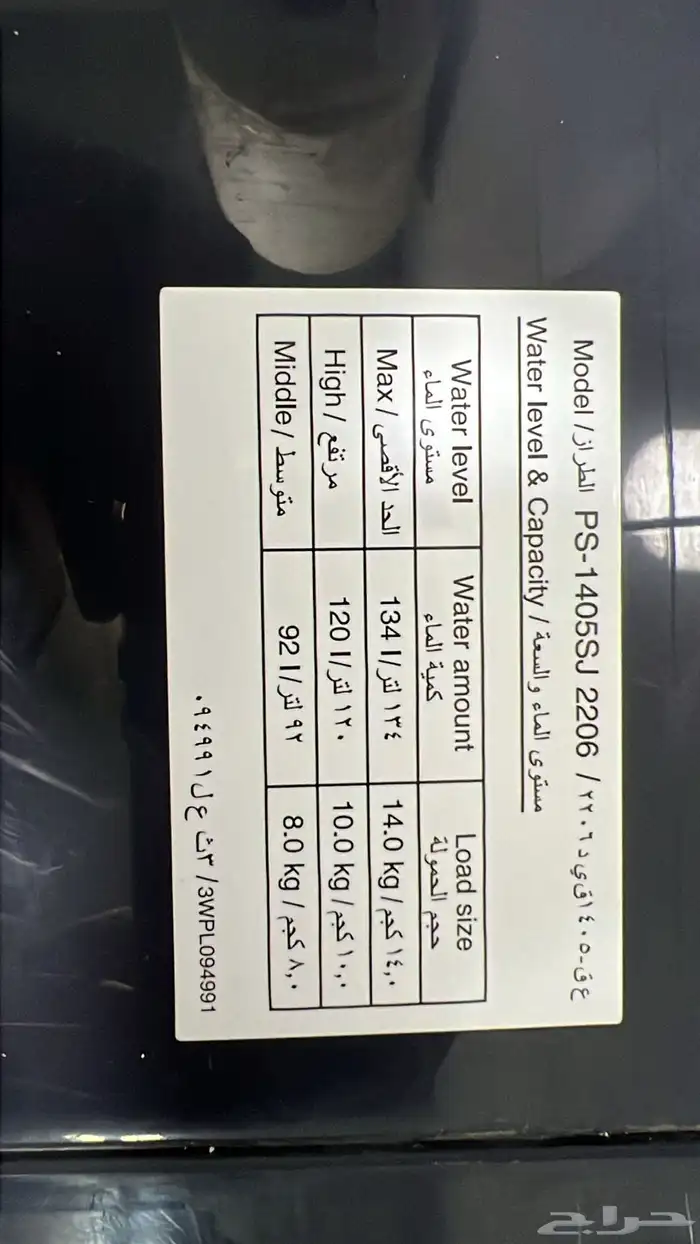 Model / الطراز PS-1405SJ 2206 / ع ق-١٤٠٥ق ي د ٢٢٠٦
Water level & Capacity / مستوى الماء والسعة
Water level Water amount Load size
مستوى الماء كمية الماء حجم الحمولة
Max / الحد الأقصى 134 l / لتر ١٣٤ 14.0 kg / كجم ١٤,٠
High / مرتفع 120 l / لتر ١٢٠ 10.0 kg / كجم ١٠,٠
Middle / متوسط 92 l / لتر ٩٢ 8.0 kg / كجم ٨,٠
٣ث ع ل ٠٩٤٩٩١ / 3WPL094991
حراج